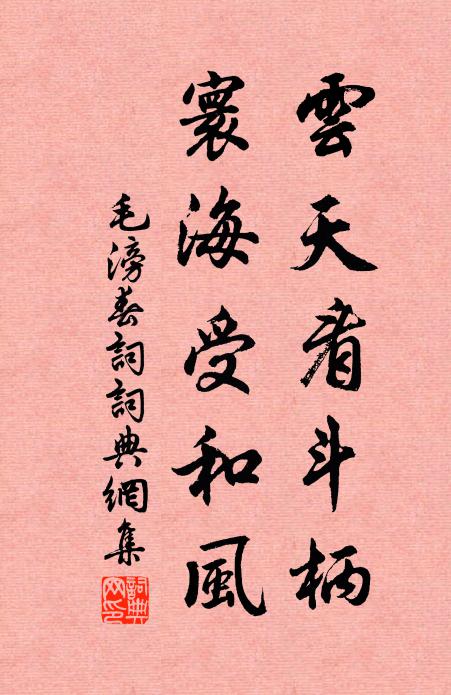 雲天看斗柄
寰海受和風
毛滂春詞詞典網集
詞典网印